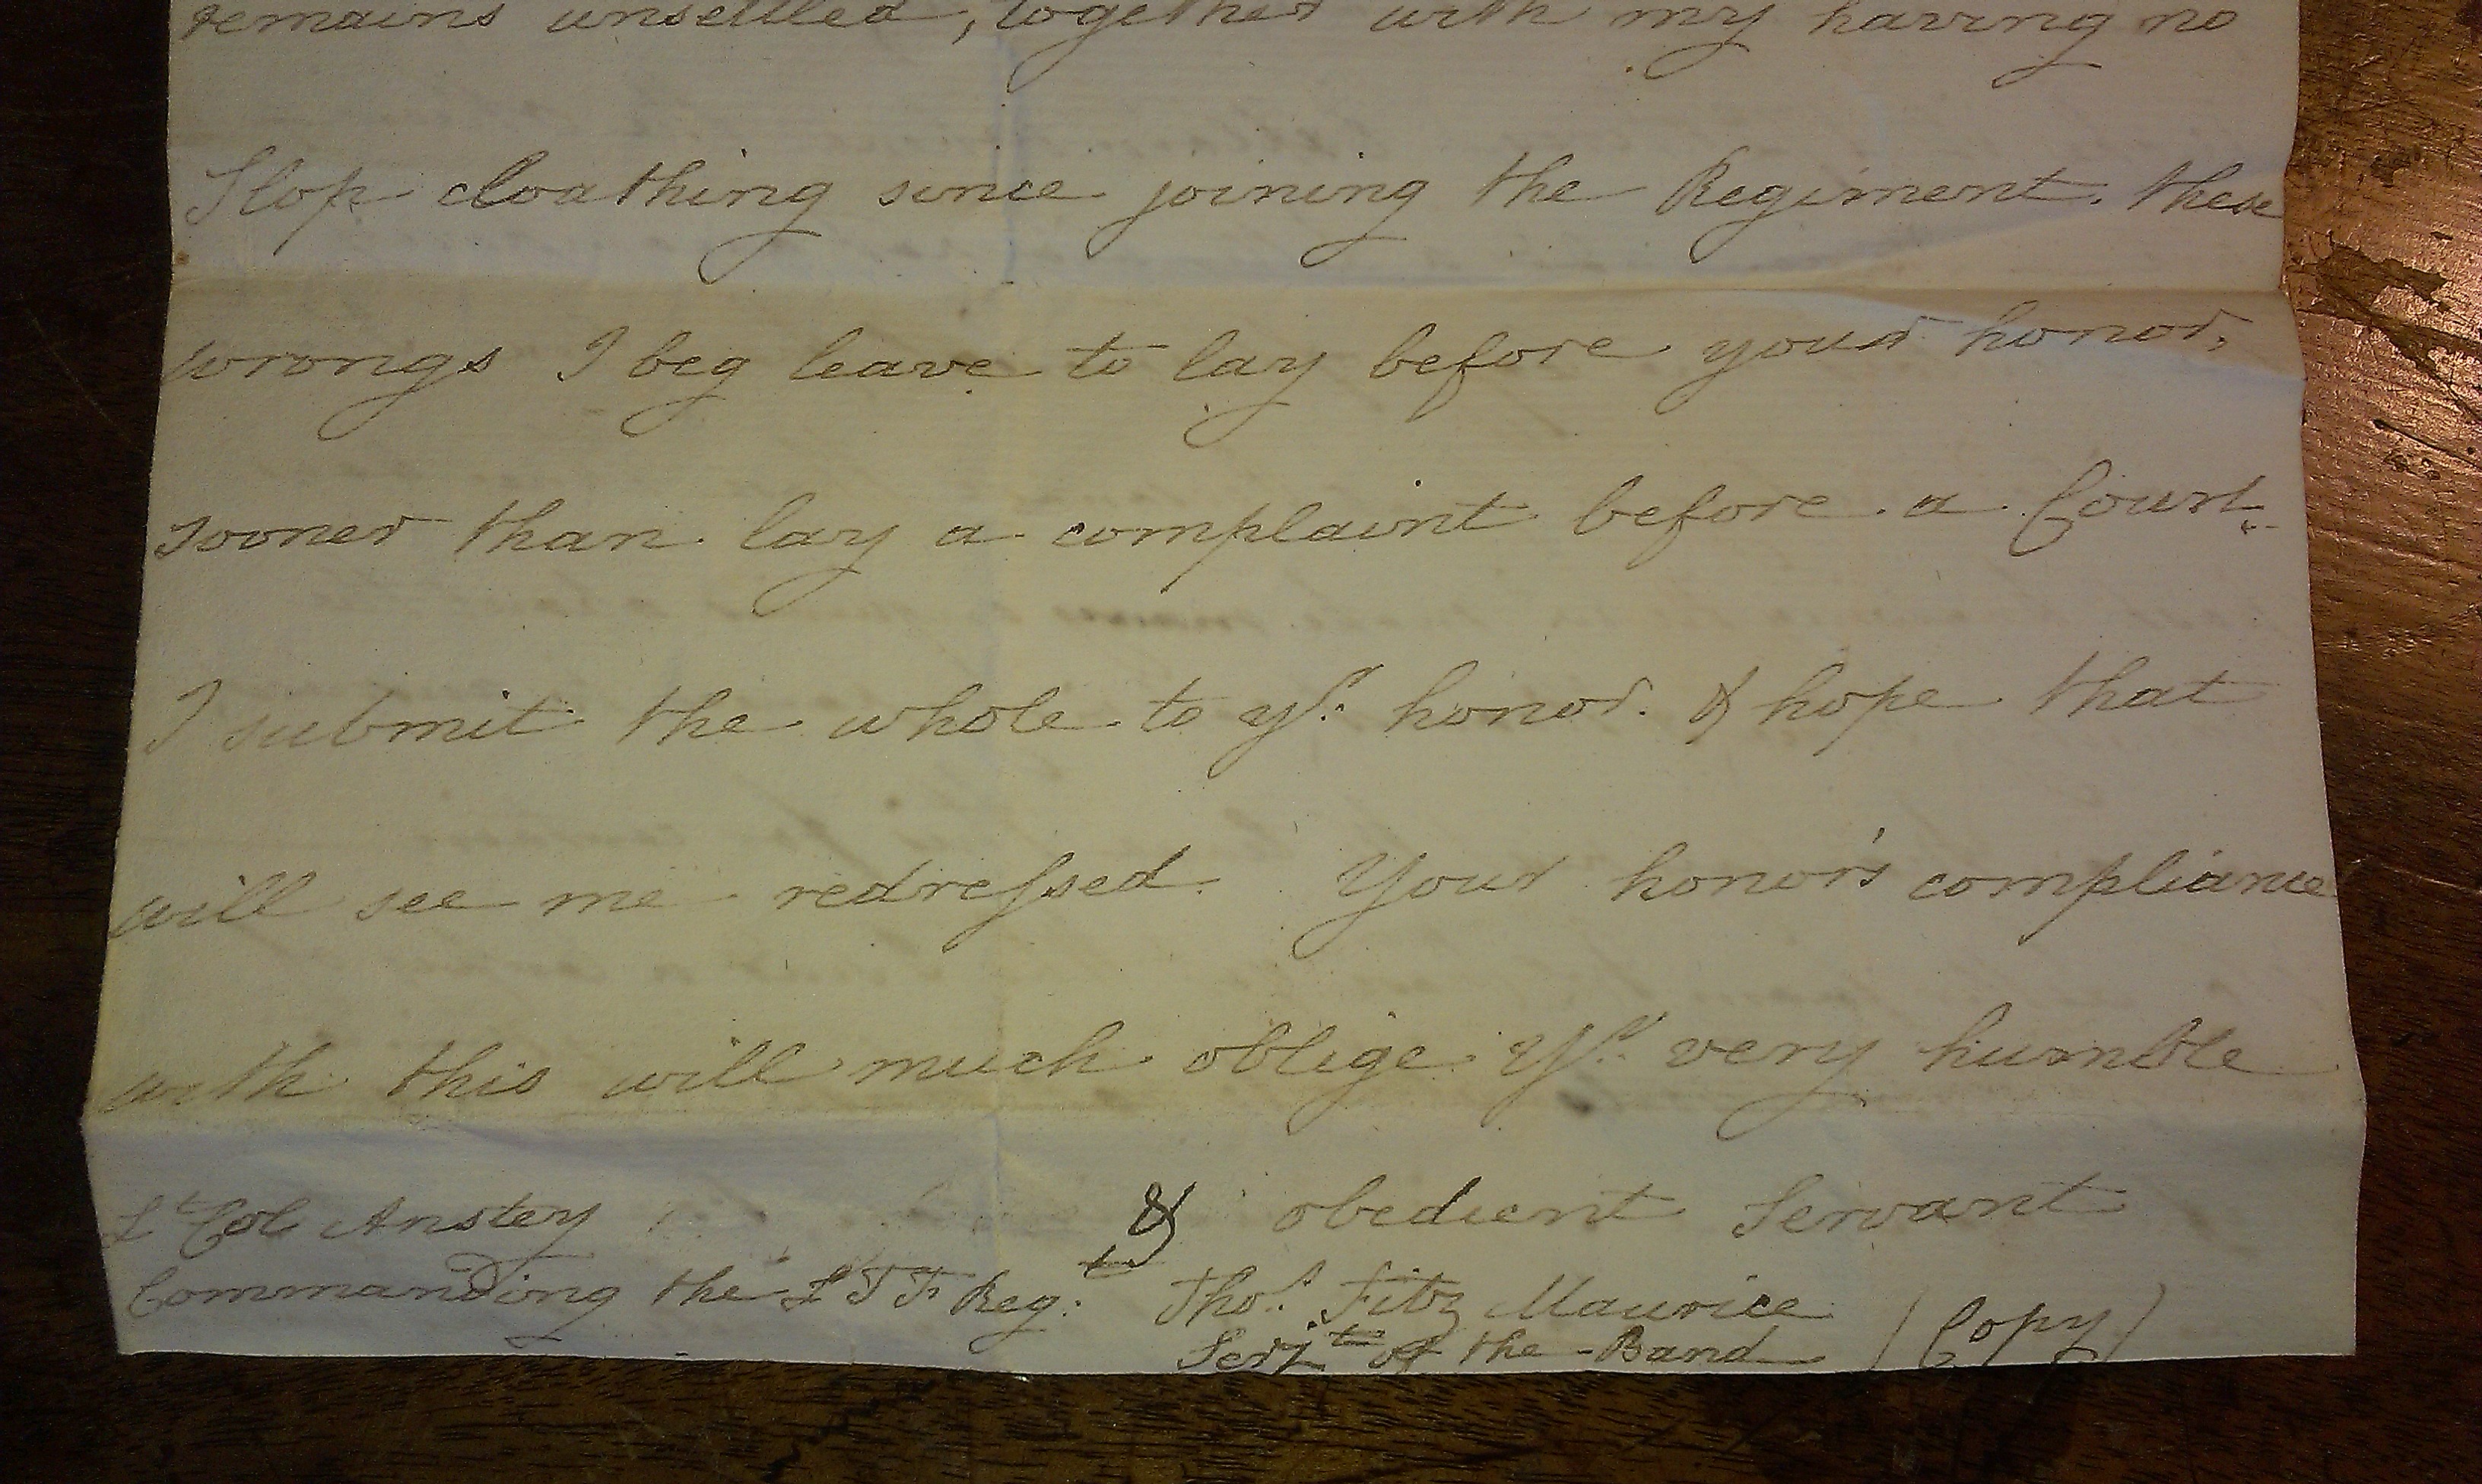 remains unsettled, together with my having no
Slop cloathing since joining the Regiment. these
wrongs I beg leave to lay before your honor,
sooner than lay a complaint before a Court.
I submit the whole to yr. honor. & hope that
will see me redressed. Your honor's compliance
with this will much oblige Yr. very humble
& obedient Servant
Lt Col Anstey
Commanding the L T F Regt: Thos. Fitz Maurice
Serjt of the Band (Copy)